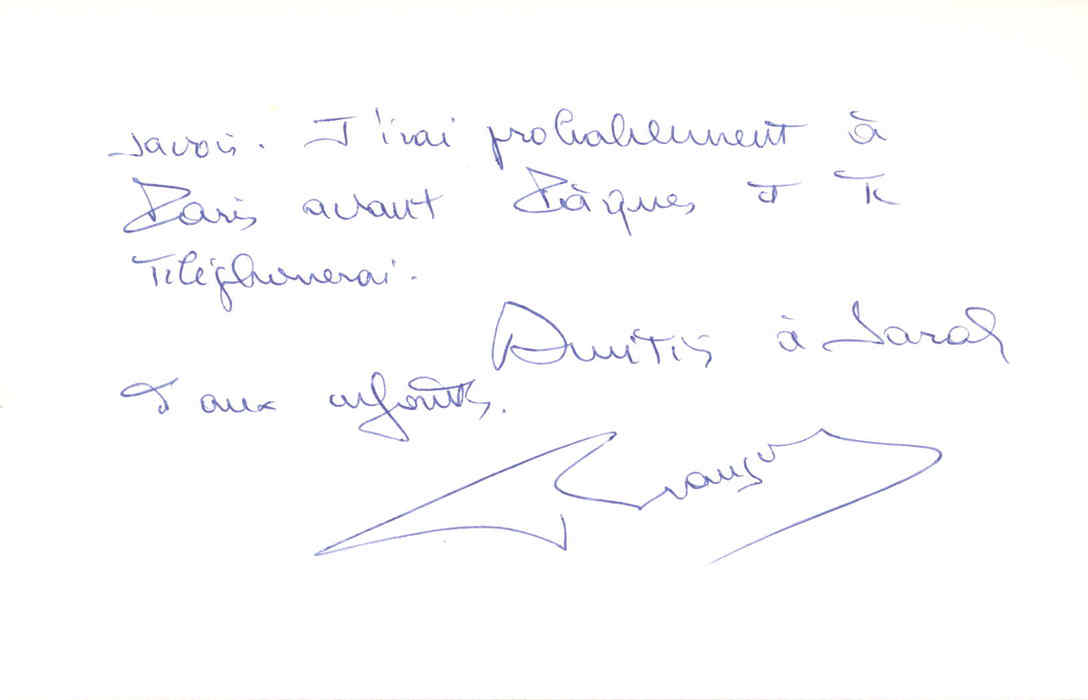 savoir. J'irai probablement à
Paris avant Pâques et te
téléphonerai.
Amitiés à Sarah
et aux enfants.
François